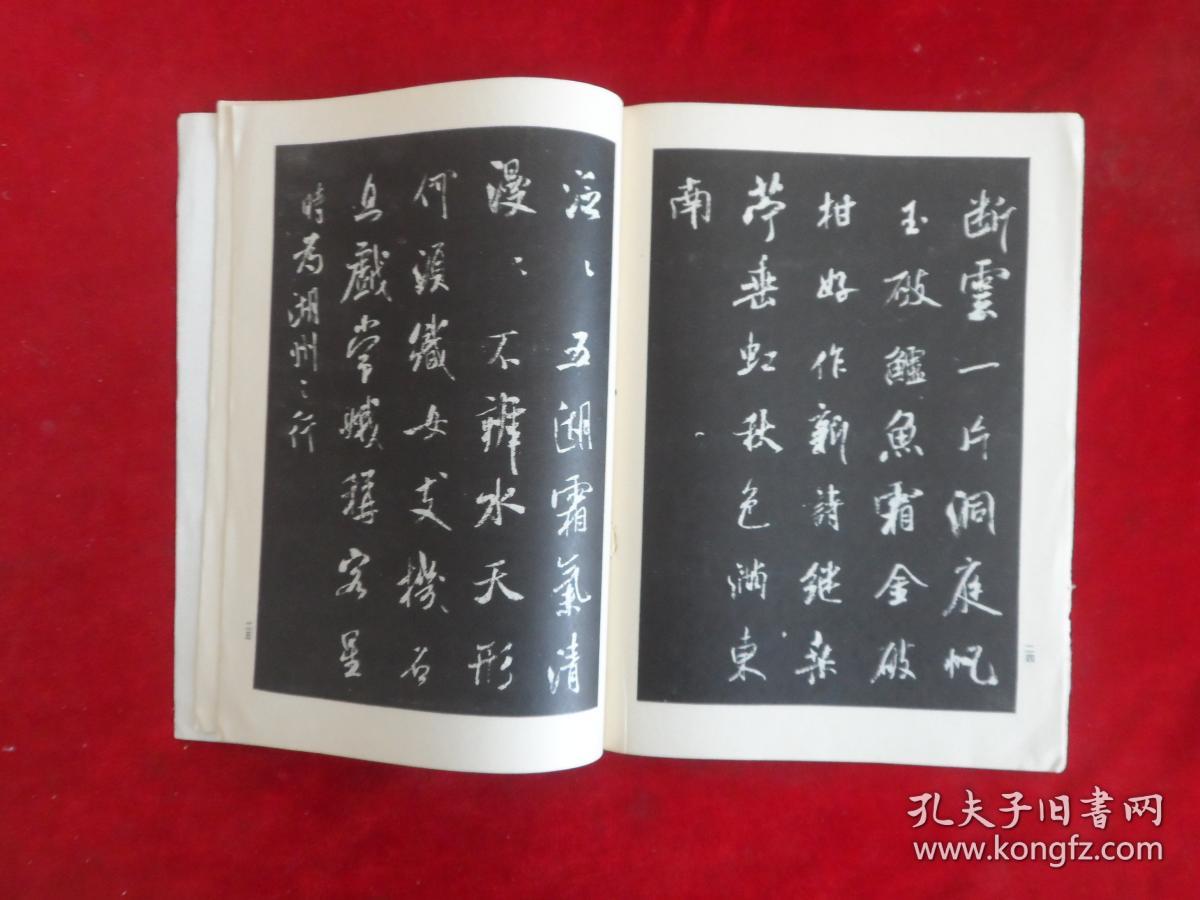 断雲一片洞庭帆
玉破鱸魚霜金破
柑好作新詩继桑
苧垂虹秋色满東
南
泛〻五湖霜氣清
漫〻不辨水天形
何須織女支機石
且戲常娥稱客星
時为湖州之行
二四
二五
孔夫子旧书网
www.kongfz.com